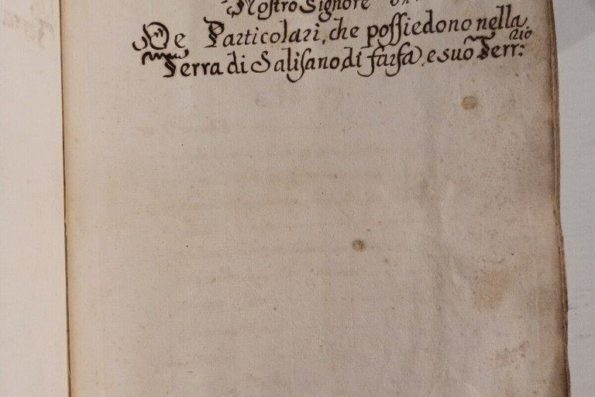 Nostro Signore
De Particolari, che possiedono nella
Terra di Salisano, di farfa, e suo Terr:rio